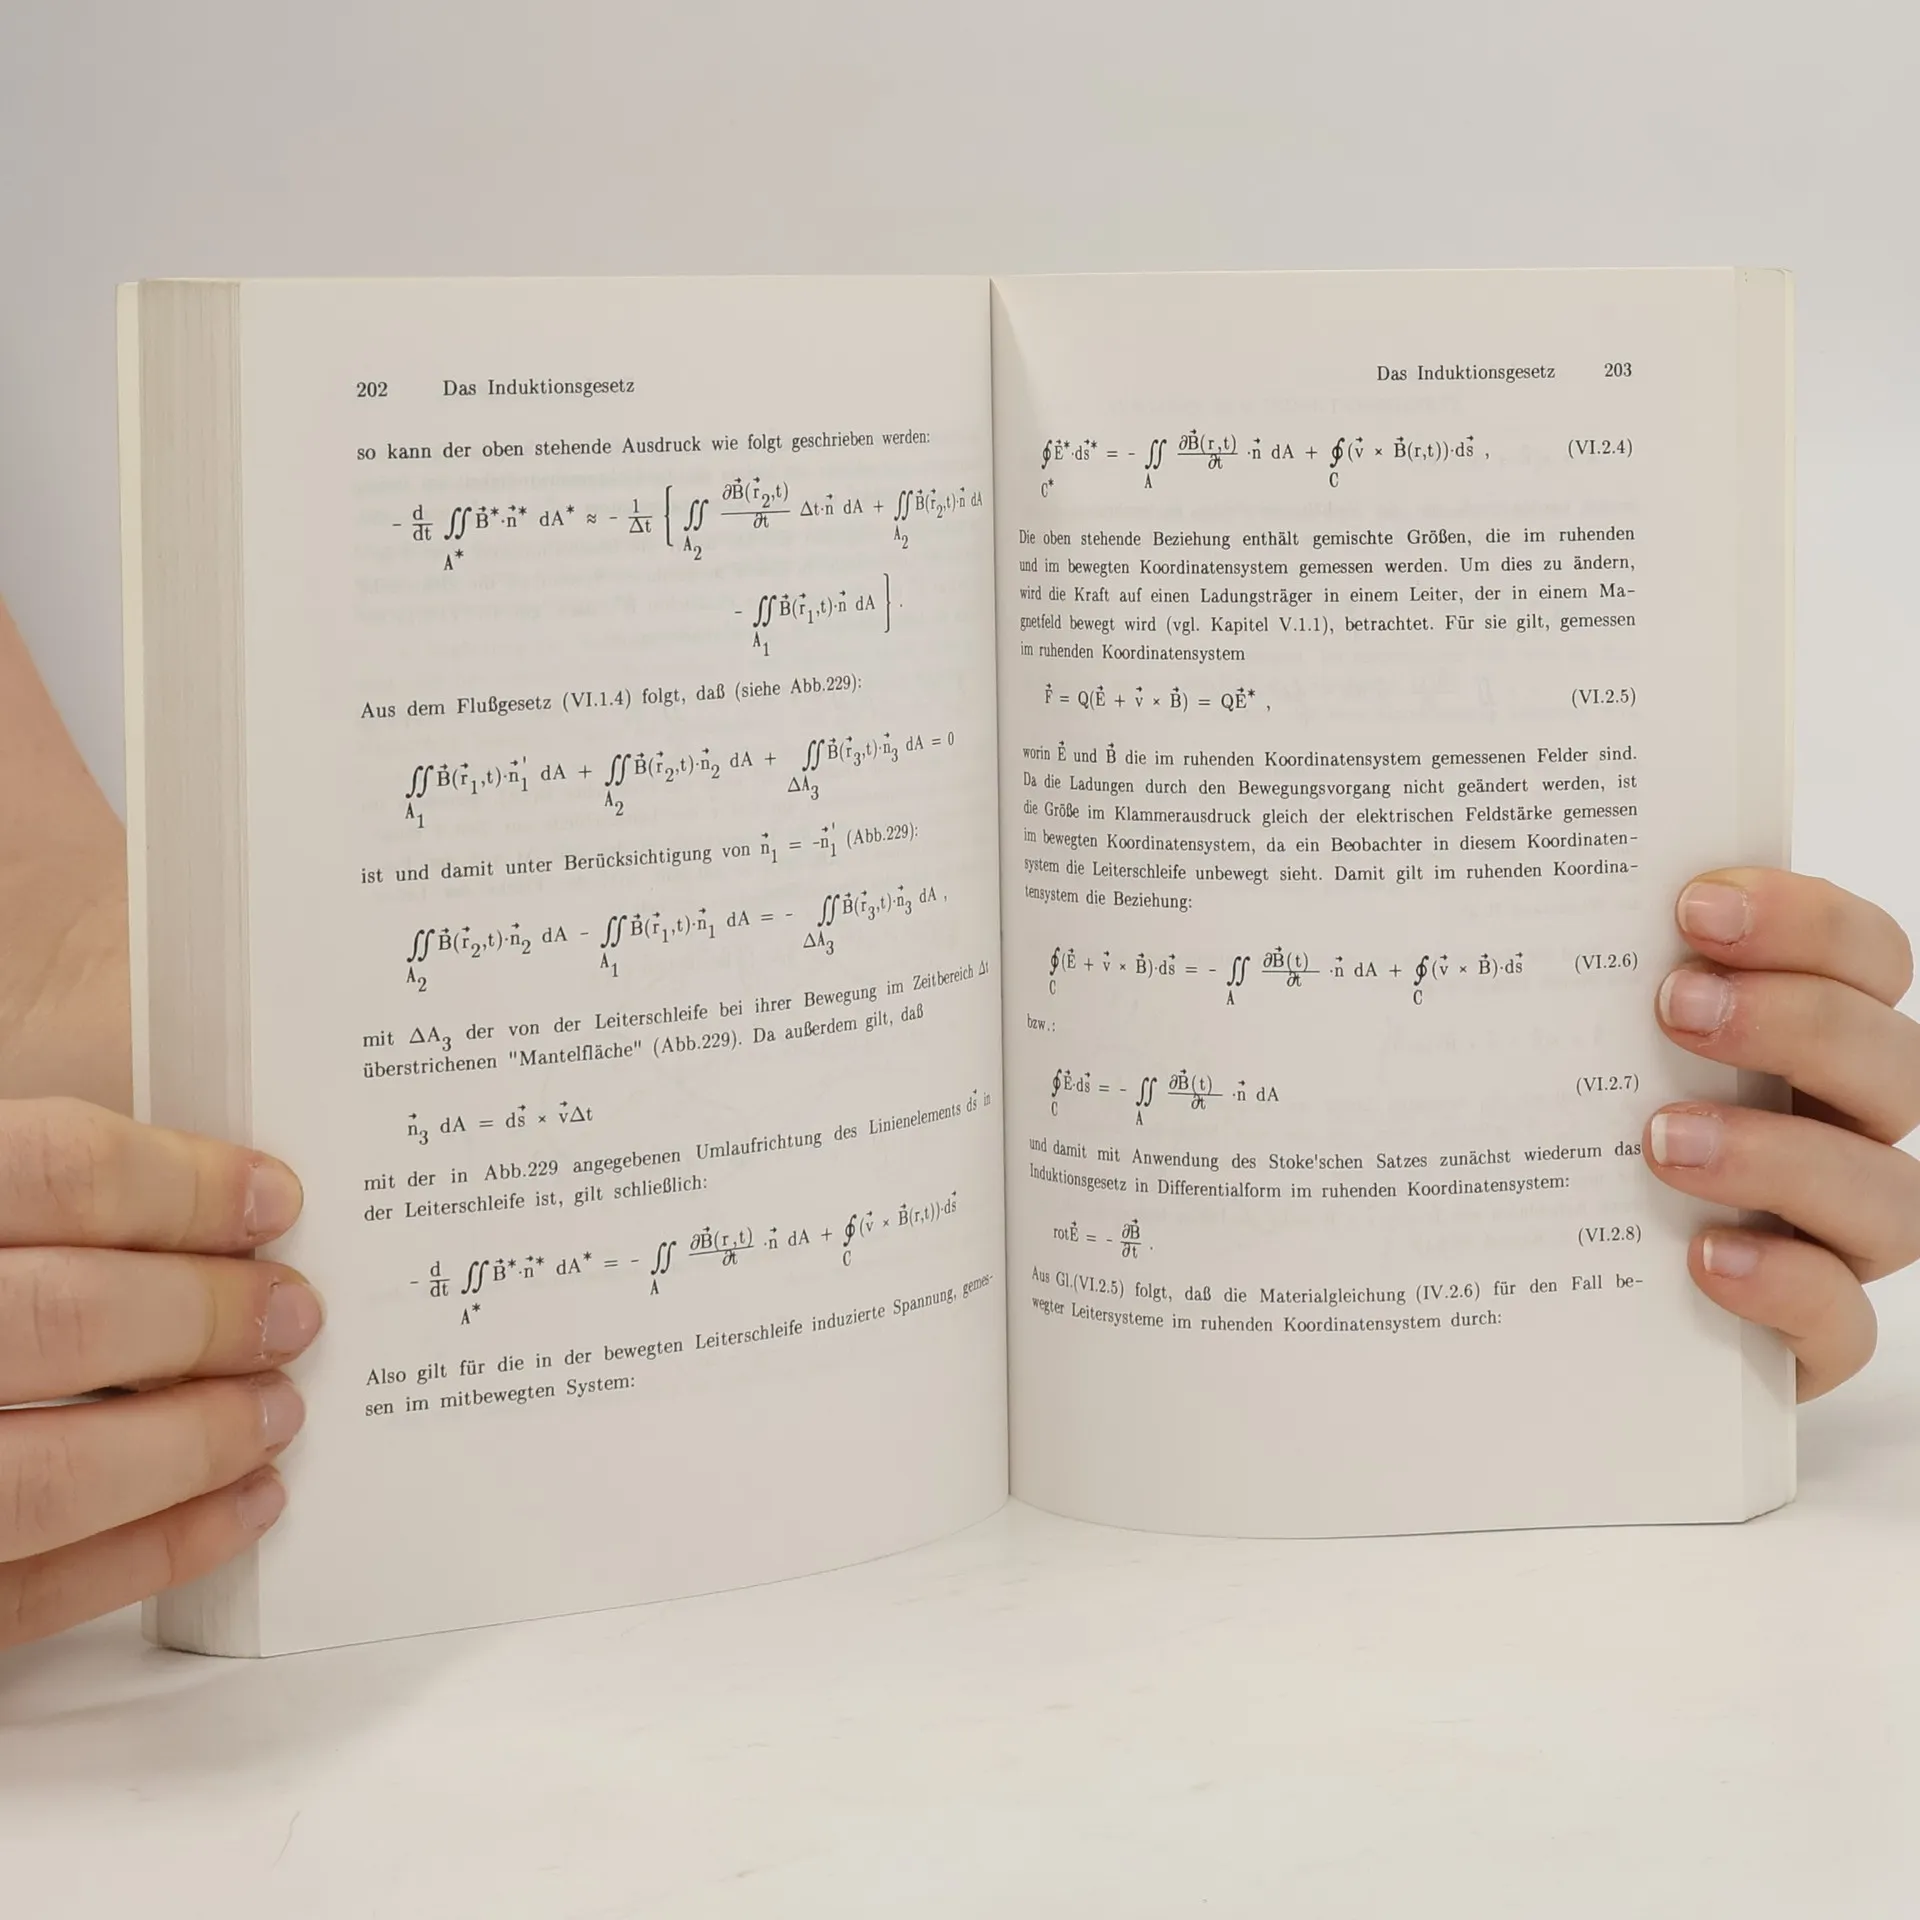 202 Das Induktionsgesetz
so kann der oben stehende Ausdruck wie folgt geschrieben werden:
- d/dt ∬_{A*} B⃗*·n⃗* dA* ≈ - 1/Δt { ∬_{A₂} ∂B⃗(r⃗₂,t)/∂t Δt·n⃗ dA + ∬_{A₂} B⃗(r⃗₂,t)·n⃗ dA
- ∬_{A₁} B⃗(r⃗₁,t)·n⃗ dA } .
Aus dem Flußgesetz (VI.1.4) folgt, daß (siehe Abb.229):
∬_{A₁} B⃗(r⃗₁,t)·n⃗₁' dA + ∬_{A₂} B⃗(r⃗₂,t)·n⃗₂ dA + ∬_{ΔA₃} B⃗(r⃗₃,t)·n⃗₃ dA = 0
ist und damit unter Berücksichtigung von n⃗₁ = -n⃗₁' (Abb.229):
∬_{A₂} B⃗(r⃗₂,t)·n⃗₂ dA - ∬_{A₁} B⃗(r⃗₁,t)·n⃗₁ dA = - ∬_{ΔA₃} B⃗(r⃗₃,t)·n⃗₃ dA ,
mit ΔA₃ der von der Leiterschleife bei ihrer Bewegung im Zeitbereich Δt
überstrichenen "Mantelfläche" (Abb.229). Da außerdem gilt, daß
n⃗₃ dA = ds⃗ × v⃗Δt
mit der in Abb.229 angegebenen Umlaufrichtung des Linienelements ds⃗ in
der Leiterschleife ist, gilt schließlich:
- d/dt ∬_{A*} B⃗*·n⃗* dA* = - ∬_{A} ∂B⃗(r,t)/∂t ·n⃗ dA + ∮_{C} (v⃗ × B⃗(r,t))·ds⃗
Also gilt für die in der bewegten Leiterschleife induzierte Spannung, gemes-
sen im mitbewegten System:
Das Induktionsgesetz 203
∮_{C*} E⃗*·ds⃗* = - ∬_{A} ∂B⃗(r,t)/∂t ·n⃗ dA + ∮_{C} (v⃗ × B⃗(r,t))·ds⃗ , (VI.2.4)
Die oben stehende Beziehung enthält gemischte Größen, die im ruhenden
und im bewegten Koordinatensystem gemessen werden. Um dies zu ändern,
wird die Kraft auf einen Ladungsträger in einem Leiter, der in einem Ma-
gnetfeld bewegt wird (vgl. Kapitel V.1.1), betrachtet. Für sie gilt, gemessen
im ruhenden Koordinatensystem
F⃗ = Q(E⃗ + v⃗ × B⃗) = QE⃗* , (VI.2.5)
worin E⃗ und B⃗ die im ruhenden Koordinatensystem gemessenen Felder sind.
Da die Ladungen durch den Bewegungsvorgang nicht geändert werden, ist
die Größe im Klammerausdruck gleich der elektrischen Feldstärke gemessen
im bewegten Koordinatensystem, da ein Beobachter in diesem Koordinaten-
system die Leiterschleife unbewegt sieht. Damit gilt im ruhenden Koordina-
tensystem die Beziehung:
∮_{C} (E⃗ + v⃗ × B⃗)·ds⃗ = - ∬_{A} ∂B⃗(t)/∂t ·n⃗ dA + ∮_{C} (v⃗ × B⃗)·ds⃗ (VI.2.6)
bzw.:
∮_{C} E⃗·ds⃗ = - ∬_{A} ∂B⃗(t)/∂t ·n⃗ dA (VI.2.7)
und damit mit Anwendung des Stoke'schen Satzes zunächst wiederum das
Induktionsgesetz in Differentialform im ruhenden Koordinatensystem:
rotE⃗ = - ∂B⃗/∂t . (VI.2.8)
Aus Gl.(VI.2.5) folgt, daß die Materialgleichung (IV.2.6) für den Fall be-
wegter Leitersysteme im ruhenden Koordinatensystem durch: